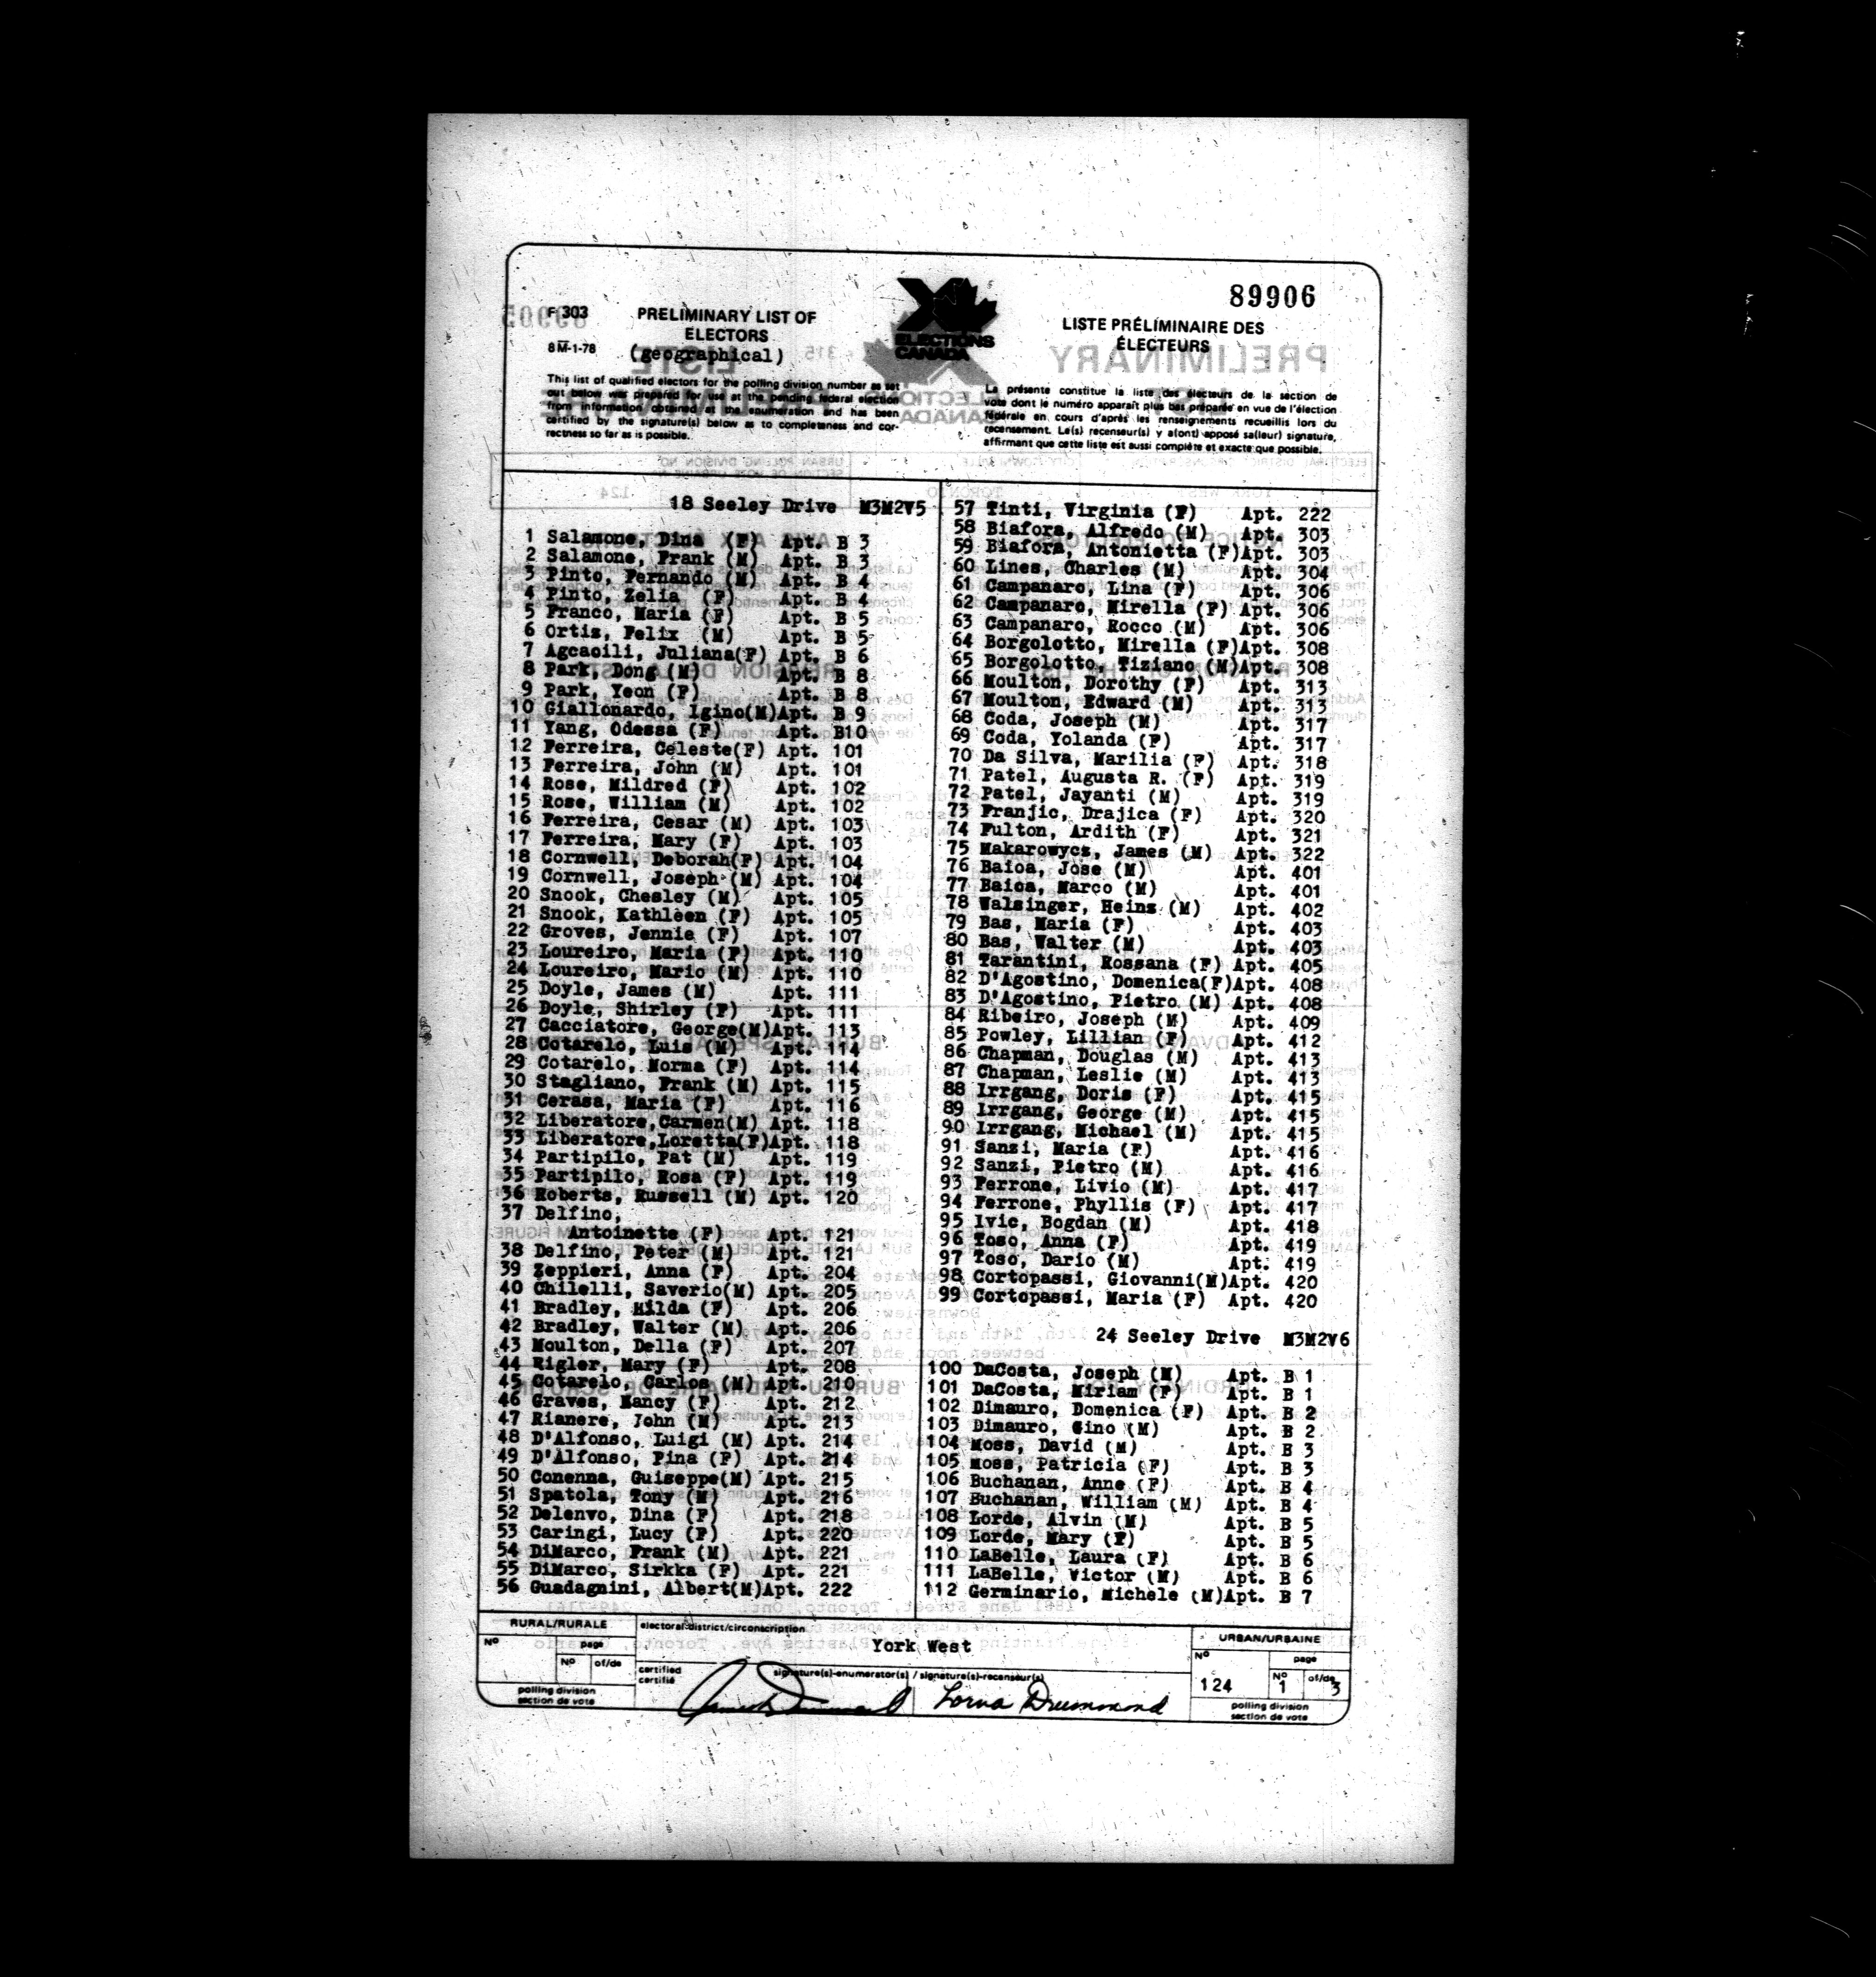 89906
F 303
8 M-1-78
PRELIMINARY LIST OF
ELECTORS
(geographical)
ELECTIONS
CANADA
LISTE PRÉLIMINAIRE DES
ÉLECTEURS
This list of qualified electors for the polling division number as set
out below was prepared for use at the pending federal election
from information obtained at the enumeration and has been
certified by the signature(s) below as to completeness and cor-
rectness so far as is possible.
La présente constitue la liste des électeurs de la section de
vote dont le numéro apparaît plus bas préparée en vue de l'élection
fédérale en cours d'après les renseignements recueillis lors du
recensement. Le(s) recenseur(s) y a(ont) apposé sa(leur) signature,
affirmant que cette liste est aussi complète et exacte que possible.
18 Seeley Drive M3M2V5
1 Salamone, Dina (F) Apt. B 3
2 Salamone, Frank (M) Apt. B 3
3 Pinto, Fernando (M) Apt. B 4
4 Pinto, Zelia (F) Apt. B 4
5 Franco, Maria (F) Apt. B 5
6 Ortis, Felix (M) Apt. B 5
7 Agcaoili, Juliana(F) Apt. B 6
8 Park, Dong (M) Apt. B 8
9 Park, Yeon (F) Apt. B 8
10 Giallonardo, Igino(M)Apt. B 9
11 Yang, Odessa (F) Apt. B10
12 Ferreira, Celeste(F) Apt. 101
13 Ferreira, John (M) Apt. 101
14 Rose, Mildred (F) Apt. 102
15 Rose, William (M) Apt. 102
16 Ferreira, Cesar (M) Apt. 103
17 Ferreira, Mary (F) Apt. 103
18 Cornwell, Deborah(F) Apt. 104
19 Cornwell, Joseph (M) Apt. 104
20 Snook, Chesley (M) Apt. 105
21 Snook, Kathleen (F) Apt. 105
22 Groves, Jennie (F) Apt. 107
23 Loureiro, Maria (F) Apt. 110
24 Loureiro, Mario (M) Apt. 110
25 Doyle, James (M) Apt. 111
26 Doyle, Shirley (F) Apt. 111
27 Cacciatore, George(M)Apt. 113
28 Cotarelo, Luis (M) Apt. 114
29 Cotarelo, Norma (F) Apt. 114
30 Stagliano, Frank (M) Apt. 115
31 Cerasa, Maria (F) Apt. 116
32 Liberatore,Carmen(M) Apt. 118
33 Liberatore,Loretta(F)Apt. 118
34 Partipilo, Pat (M) Apt. 119
35 Partipilo, Rosa (F) Apt. 119
36 Roberts, Russell (M) Apt. 120
37 Delfino,
Antoinette (F) Apt. 121
38 Delfino, Peter (M) Apt. 121
39 Zeppieri, Anna (F) Apt. 204
40 Chilelli, Saverio(M) Apt. 205
41 Bradley, Hilda (F) Apt. 206
42 Bradley, Walter (M) Apt. 206
43 Moulton, Della (F) Apt. 207
44 Rigler, Mary (F) Apt. 208
45 Cotarelo, Carlos (M) Apt. 210
46 Graves, Nancy (F) Apt. 212
47 Rianere, John (M) Apt. 213
48 D'Alfonso, Luigi (M) Apt. 214
49 D'Alfonso, Pina (F) Apt. 214
50 Conenna, Guiseppe(M) Apt. 215
51 Spatola, Tony (M) Apt. 216
52 Delenvo, Dina (F) Apt. 218
53 Caringi, Lucy (F) Apt. 220
54 DiMarco, Frank (M) Apt. 221
55 DiMarco, Sirkka (F) Apt. 221
56 Guadagnini, Albert(M)Apt. 222
57 Tinti, Virginia (F) Apt. 222
58 Biafora, Alfredo (M) Apt. 303
59 Biafora, Antonietta (F)Apt. 303
60 Lines, Charles (M) Apt. 304
61 Campanaro, Lina (F) Apt. 306
62 Campanaro, Mirella (F) Apt. 306
63 Campanaro, Rocco (M) Apt. 306
64 Borgolotto, Mirella (F)Apt. 308
65 Borgolotto, Tiziano (M)Apt. 308
66 Moulton, Dorothy (F) Apt. 313
67 Moulton, Edward (M) Apt. 313
68 Coda, Joseph (M) Apt. 317
69 Coda, Yolanda (F) Apt. 317
70 Da Silva, Marilia (F) Apt. 318
71 Patel, Augusta R. (F) Apt. 319
72 Patel, Jayanti (M) Apt. 319
73 Franjic, Drajica (F) Apt. 320
74 Fulton, Ardith (F) Apt. 321
75 Makarowycs, James (M) Apt. 322
76 Baioa, Jose (M) Apt. 401
77 Baioa, Marco (M) Apt. 401
78 Walsinger, Heins (M) Apt. 402
79 Bas, Maria (F) Apt. 403
80 Bas, Walter (M) Apt. 403
81 Tarantini, Rossana (F) Apt. 405
82 D'Agostino, Domenica(F)Apt. 408
83 D'Agostino, Pietro (M) Apt. 408
84 Ribeiro, Joseph (M) Apt. 409
85 Powley, Lillian (F) Apt. 412
86 Chapman, Douglas (M) Apt. 413
87 Chapman, Leslie (M) Apt. 413
88 Irrgang, Doris (F) Apt. 415
89 Irrgang, George (M) Apt. 415
90 Irrgang, Michael (M) Apt. 415
91 Sanzi, Maria (F) Apt. 416
92 Sanzi, Pietro (M) Apt. 416
93 Ferrone, Livio (M) Apt. 417
94 Ferrone, Phyllis (F) Apt. 417
95 Ivic, Bogdan (M) Apt. 418
96 Toso, Anna (F) Apt. 419
97 Toso, Dario (M) Apt. 419
98 Cortopassi, Giovanni(M)Apt. 420
99 Cortopassi, Maria (F) Apt. 420
24 Seeley Drive M3M2V6
100 DaCosta, Joseph (M) Apt. B 1
101 DaCosta, Miriam (F) Apt. B 1
102 Dimauro, Domenica (F) Apt. B 2
103 Dimauro, Gino (M) Apt. B 2
104 Moss, David (M) Apt. B 3
105 Moss, Patricia (F) Apt. B 3
106 Buchanan, Anne (F) Apt. B 4
107 Buchanan, William (M) Apt. B 4
108 Lorde, Alvin (M) Apt. B 5
109 Lorde, Mary (F) Apt. B 5
110 LaBelle, Laura (F) Apt. B 6
111 LaBelle, Victor (M) Apt. B 6
112 Germinario, Michele (M)Apt. B 7
RURAL/RURALE
No
page
No of/de
polling division
section de vote
electoral district/circonscription
York West
certified
certifié
signature(s)-enumerator(s) / signature(s)-recenseur(s)
Lorna Drummond
URBAN/URBAINE
No
page
124
No of/de
1 3
polling division
section de vote